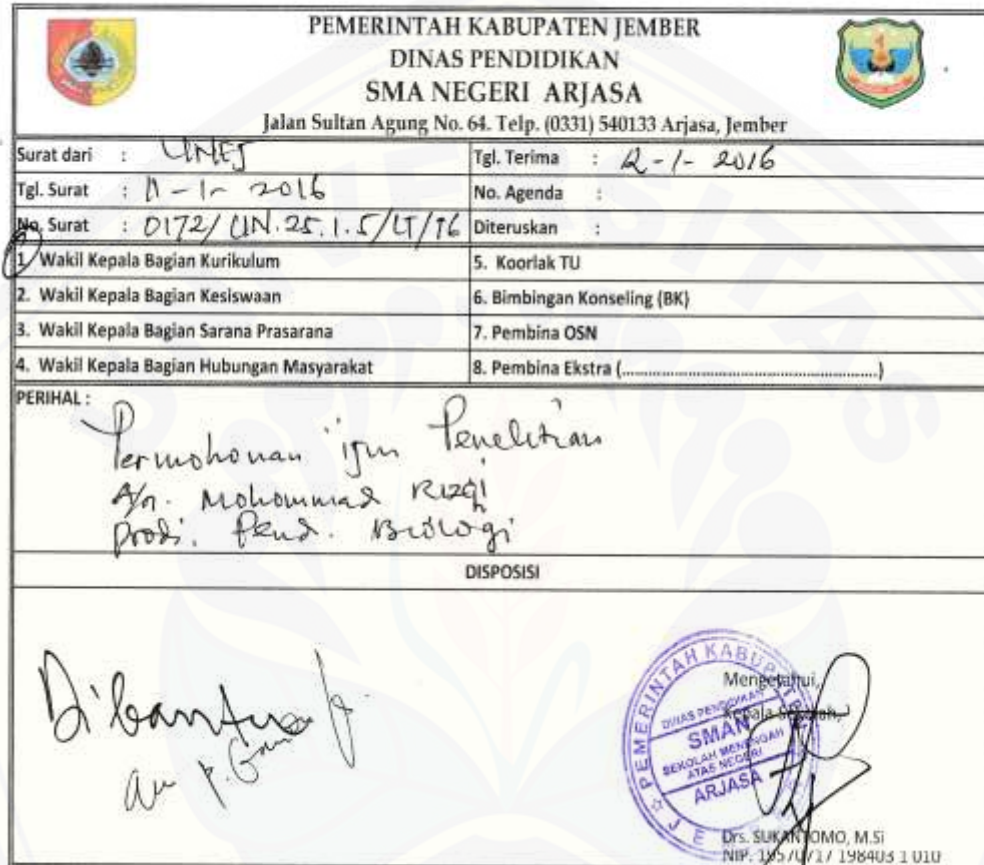 PEMERINTAH KABUPATEN JEMBER
DINAS PENDIDIKAN
SMA NEGERI ARJASA
Jalan Sultan Agung No. 64. Telp. (0331) 540133 Arjasa, Jember
Surat dari : UNEJ
Tgl. Terima : 12-1-2016
Tgl. Surat : 11-1-2016
No. Agenda :
No. Surat : 0172/UN.25.1.5/LT/16
Diteruskan :
1. Wakil Kepala Bagian Kurikulum
5. Koorlak TU
2. Wakil Kepala Bagian Kesiswaan
6. Bimbingan Konseling (BK)
3. Wakil Kepala Bagian Sarana Prasarana
7. Pembina OSN
4. Wakil Kepala Bagian Hubungan Masyarakat
8. Pembina Ekstra (..................................................)
PERIHAL :
Permohonan ijin Penelitian
A/n. Mohammad Rizqi
Prodi. Pend. Biologi
DISPOSISI
Dibantu
PEMERINTAH KABUPATEN
DINAS PENDIDIKAN
SMAN
SEKOLAH MENENGAH
ATAS NEGERI
ARJASA
Mengetahui,
Kepala Sekolah,
Drs. SUKANTOMO, M.Si
NIP. 19570717 198403 1 010